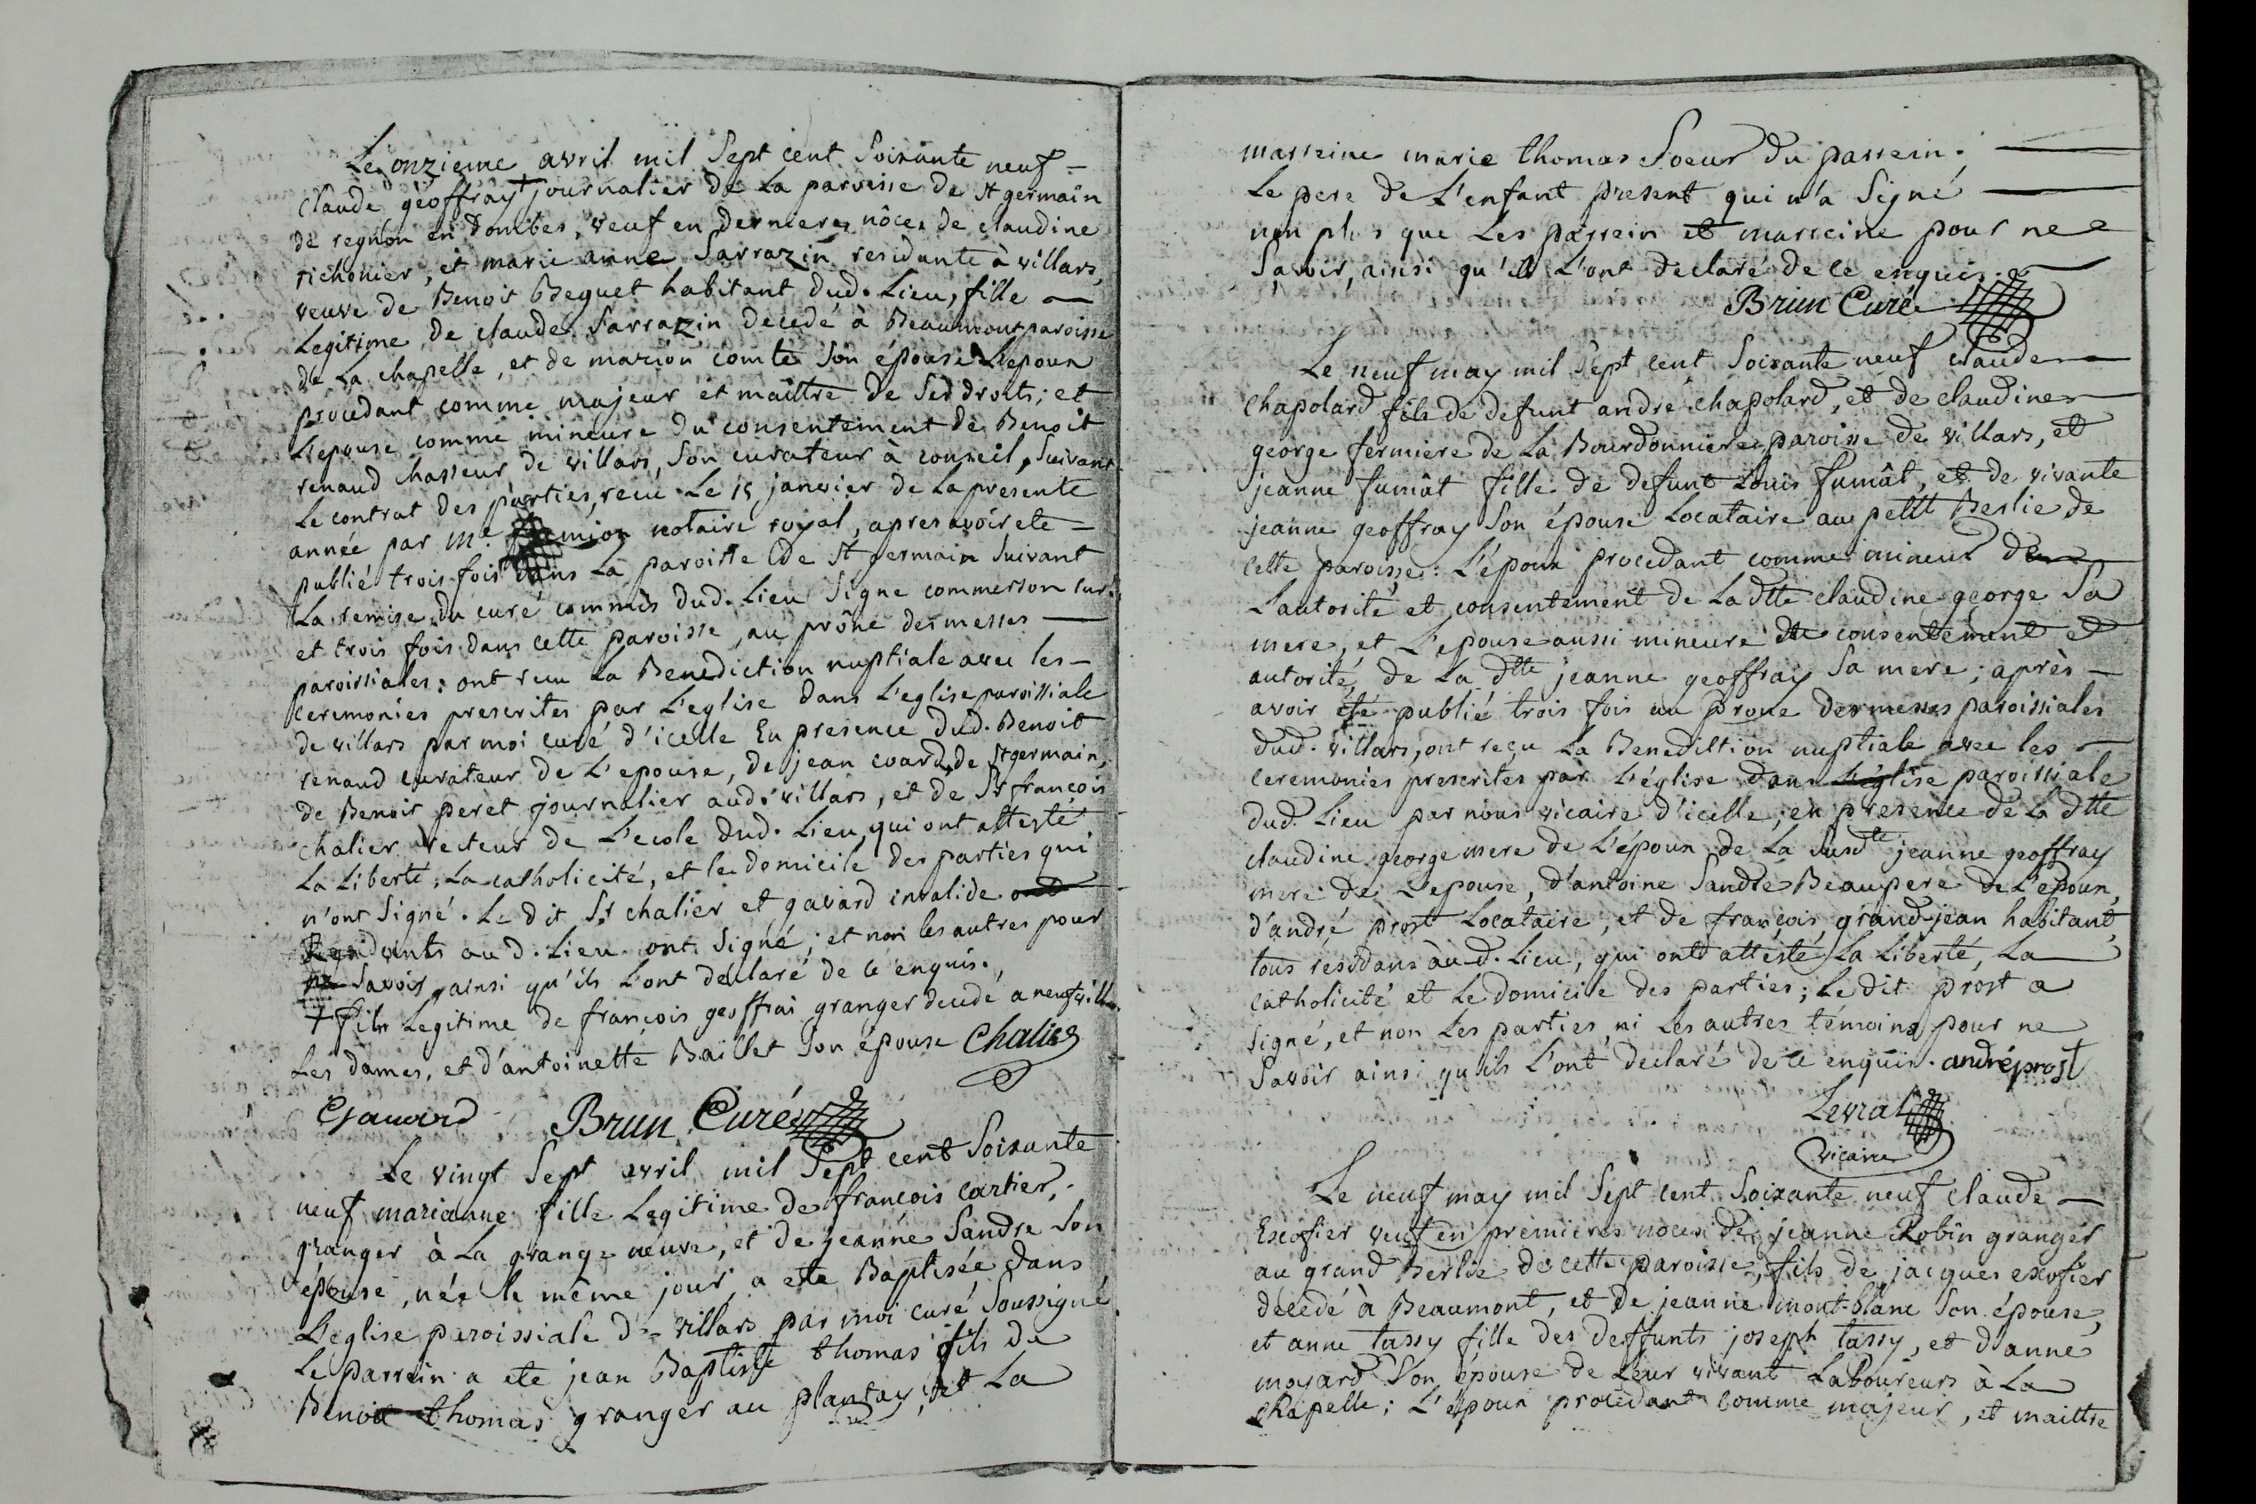 Le onzieme avril mil Sept cent Soixante neuf -
claude geoffray + journalier de La paroisse de St germain
de regnon en Dombes, veuf en dernieres nôces de claudine
richonier, et marie anne Sarrazin residante à villars,
veuve de Benoit Beguet habitant dud. Lieu, fille
Legitime de claude Sarrazin decedé à Beaumont paroisse
de La chapelle, et de marion comte son épouse. L'epoux
procedant comme majeur et maître de Ses droits; et
L'epouse comme mineure du consentement de Benoit
renaud chasseur de villars, Son curateur à conseil, Suivant
Le contrat des parties, recu Le 15 janvier de La presente
année par me notaire royal, apres avoir ete
publié trois fois dans La paroisse de St germain Suivant
La remise du curé commis dud. Lieu Signe commerson curé
et trois fois dans cette paroisse, au prône des messes
paroissiales: ont recu La Benediction nuptiale avec les -
ceremonies prescrites par L'eglise dans L'eglise paroissiale
de villars par moi curé d'icelle En presence dud. Benoit
renaud curateur de L'epouse, de jean coard, de St germain,
de Benoit peret journalier aud. villars, et de Sr françois
chalier recteur de L'ecole dud. Lieu, qui ont attesté
La Liberté, La catholicité, et le domicile des parties qui
n'ont Signé. Le dit Sr chalier et gavard invalide
Residants au d. Lieu ont Signé; et non les autres pour
ne Savoir, ainsi qu'ils L'ont declaré de ce enquis.
+ fils Legitime de françois geoffrai granger decedé a neufville
Les dames, et d'antoinette Baillet son épouse Chalier
Gavard Brun Curé
Le vingt Sept avril mil Sept cent Soixante
neuf marianne fille Legitime de françois cartier,
granger à La grange neuve, et de jeanne Sandre Son
épouse, née le même jour a ete Baptisée dans
L'eglise paroissiale de villars par moi curé Soussigné
Le parrein a ete jean Baptiste thomas fils de
Benoit thomas granger au plantay, et La
marreine marie thomas Soeur du parrein.
Le pere de L'enfant present qui n'a Signé
non plus que Les parrein et marreine pour ne
Savoir, ainsi qu'ils L'ont declaré de ce enquis.
Brun Curé
Le neuf may mil Sept cent Soixante neuf claude
chapolard fils de defunt andré chapolard, et de claudine
george fermiere de La Bourdonniere paroisse de villars, et
jeanne fumât fille de defunt Louis fumât, et de vivante
jeanne geoffray Son épouse Locataire au petit Berlie de
cette paroisse: L'époux procedant comme mineur de
L'autorité et consentement de La dtte claudine george Sa
mere, et L'epouse aussi mineure de consentement et
autorité de La dtte jeanne geoffray Sa mere; après -
avoir été publié trois fois au prone des messes paroissiales
dud. villars, ont reçu La Benediction nuptiale avec les
ceremonies prescrites par L'église dans L'église paroissiale
dud. Lieu par nous vicaire d'icelle; en presence de La dtte
claudine george mere de L'époux de La susdte jeanne geoffray
mere de L'epouse, d'antoine Sandre Beaupere de L'époux,
d'andré prost Locataire, et de françois grandjean habitant,
tous residans au d. Lieu, qui ont attesté La Liberté, La
catholicité et Le domicile des parties; Le dit prost a
Signé, et non Les parties, ni Les autres témoins pour ne
Savoir ainsi qu'ils L'ont declaré de ce enquis. andréprost
Levrat
vicaire
Le neuf may mil Sept cent Soixante neuf claude -
Excofier veuf en premieres noces de jeanne Robin granger
au grand Berlie de cette paroisse, fils de jacques excofier
decedé à Beaumont, et de jeanne mont-blanc Son épouse,
et anne tassy fille des deffunts joseph tassy, et d'anne
moyard Son épouse de Leur vivant Laboureurs à La
chapelle; L'epoux procedant comme majeur, et maittre